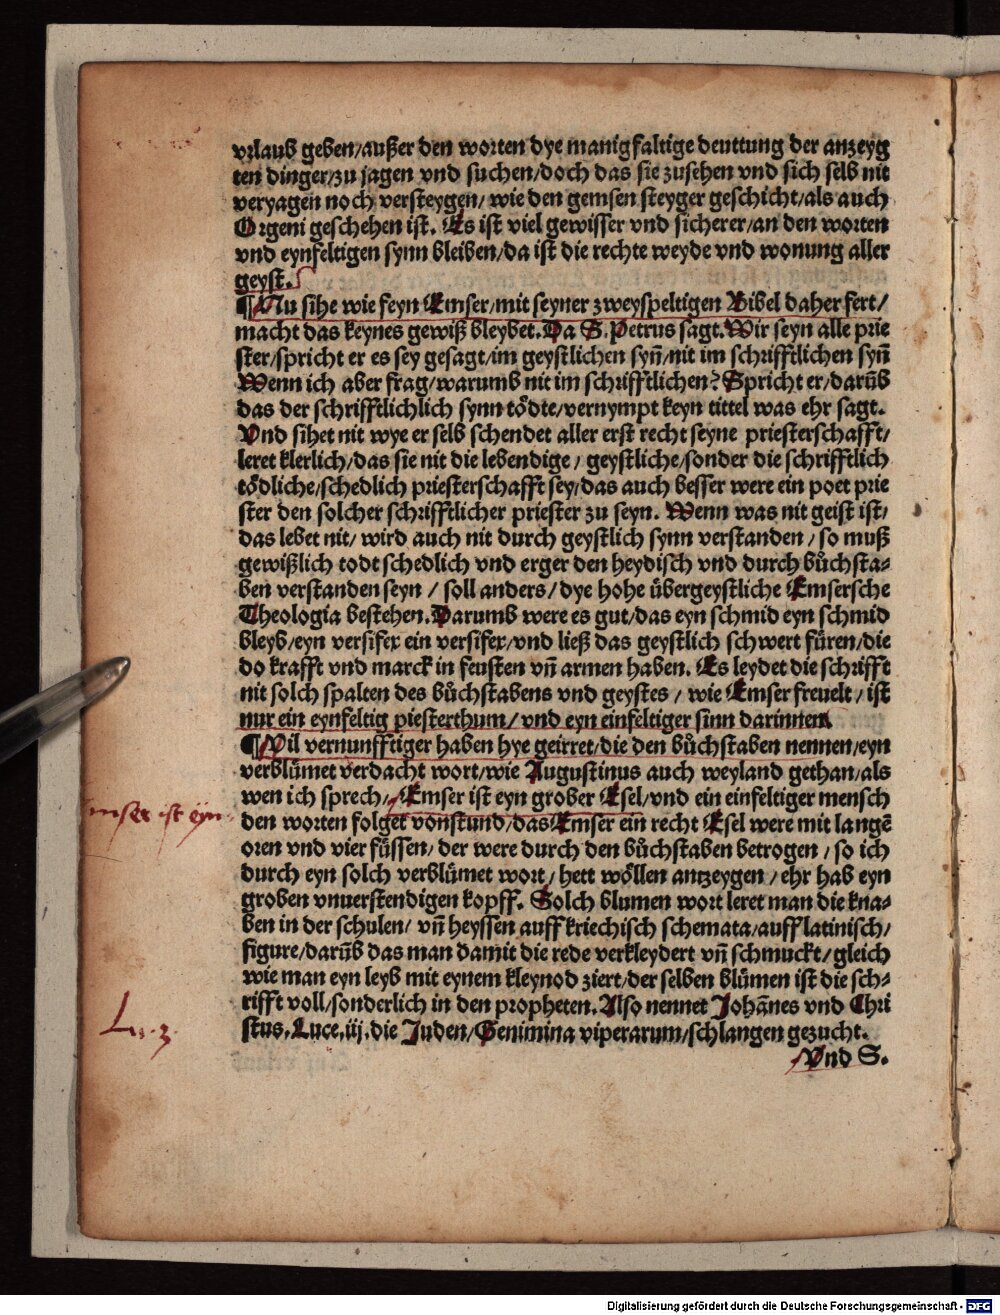 vrlaub geben/außer den worten dye manigfaltige deuttung der anzeyg
ten dinger/zu jagen vnd suchen/doch das sie zusehen vnd sich selb nit
veryagen noch versteygen/ wie den gemsen steyger geschicht/als auch
Orgeni geschehen ist. Es ist viel gewisser vnd sicherer/an den worten
vnd eynfeltigen synn bleiben/da ist die rechte weyde vnd wonung aller
geyst.
¶Nu sihe wie feyn Emser/mit seyner zweyspeltigen Bibel daher fert/
macht das keynes gewiß bleybet. Da S. Petrus sagt. Wir seyn alle prie
ster/spricht er es sey gesagt/im geystlichen syn̄/nit im schrifftlichen syn̄
Wenn ich aber frag/warumb nit im schrifftlichen? Spricht er/darūb
das der schrifftlichlich synn tödte/vernympt keyn tittel was ehr sagt.
Vnd sihet nit wye er selb schendet aller erst recht seyne priesterschafft/
leret klerlich/das sie nit die lebendige/ geystliche/sonder die schrifftlich
tödliche/schedlich priesterschafft sey/das auch besser were ein poet prie
ster den solcher schrifftlicher priester zu seyn. Wenn was nit geist ist/
das lebet nit/ wird auch nit durch geystlich synn verstanden / so muß
gewißlich todt schedlich vnd erger den heydisch vnd durch bůchsta-
ben verstanden seyn / soll anders/ dye hohe übergeystliche Emsersche
Theologia bestehen. Darumb were es gut/das eyn schmid eyn schmid
bleyb/eyn versifex ein versifex/vnd ließ das geystlich schwert füren/die
do krafft vnd marck in feusten vn̄ armen haben. Es leydet die schrifft
nit solch spalten des bůchstabens vnd geystes / wie Emser freuelt / ist
nur ein eynfeltig piesterthum/ vnd eyn einfeltiger sinn darinnen
¶Vil vernunfftiger haben hye geirret/die den bůchstaben nennen/eyn
verblümet verdacht wort/wie Augustinus auch weyland gethan/als
wen ich sprech/ Emser ist eyn grober Esel/vnd ein einfeltiger mensch
Emser ist eyn
den worten folget vonstund/das Emser ein recht Esel were mit langē
oren vnd vier füssen/ der were durch den bůchstaben betrogen / so ich
durch eyn solch verblümet wort/ hett wöllen antzeygen / ehr hab eyn
groben vnuerstendigen kopff. Solch blumen wort leret man die kna-
ben in der schulen/ vn̄ heyssen auff kriechisch schemata/auff latinisch/
figure/darūb das man damit die rede verkleydert vn̄ schmuckt/gleich
wie man eyn leyb mit eynem kleynod ziert/der selben blümen ist die sch-
rifft voll/sonderlich in den propheten. Also nennet Johānes vnd Chri
Lu. 3.
stus. Luce. iij. die Juden/Genimina viperarum/schlangen gezucht.
Vnd S.
Digitalisierung gefördert durch die Deutsche Forschungsgemeinschaft - DFG